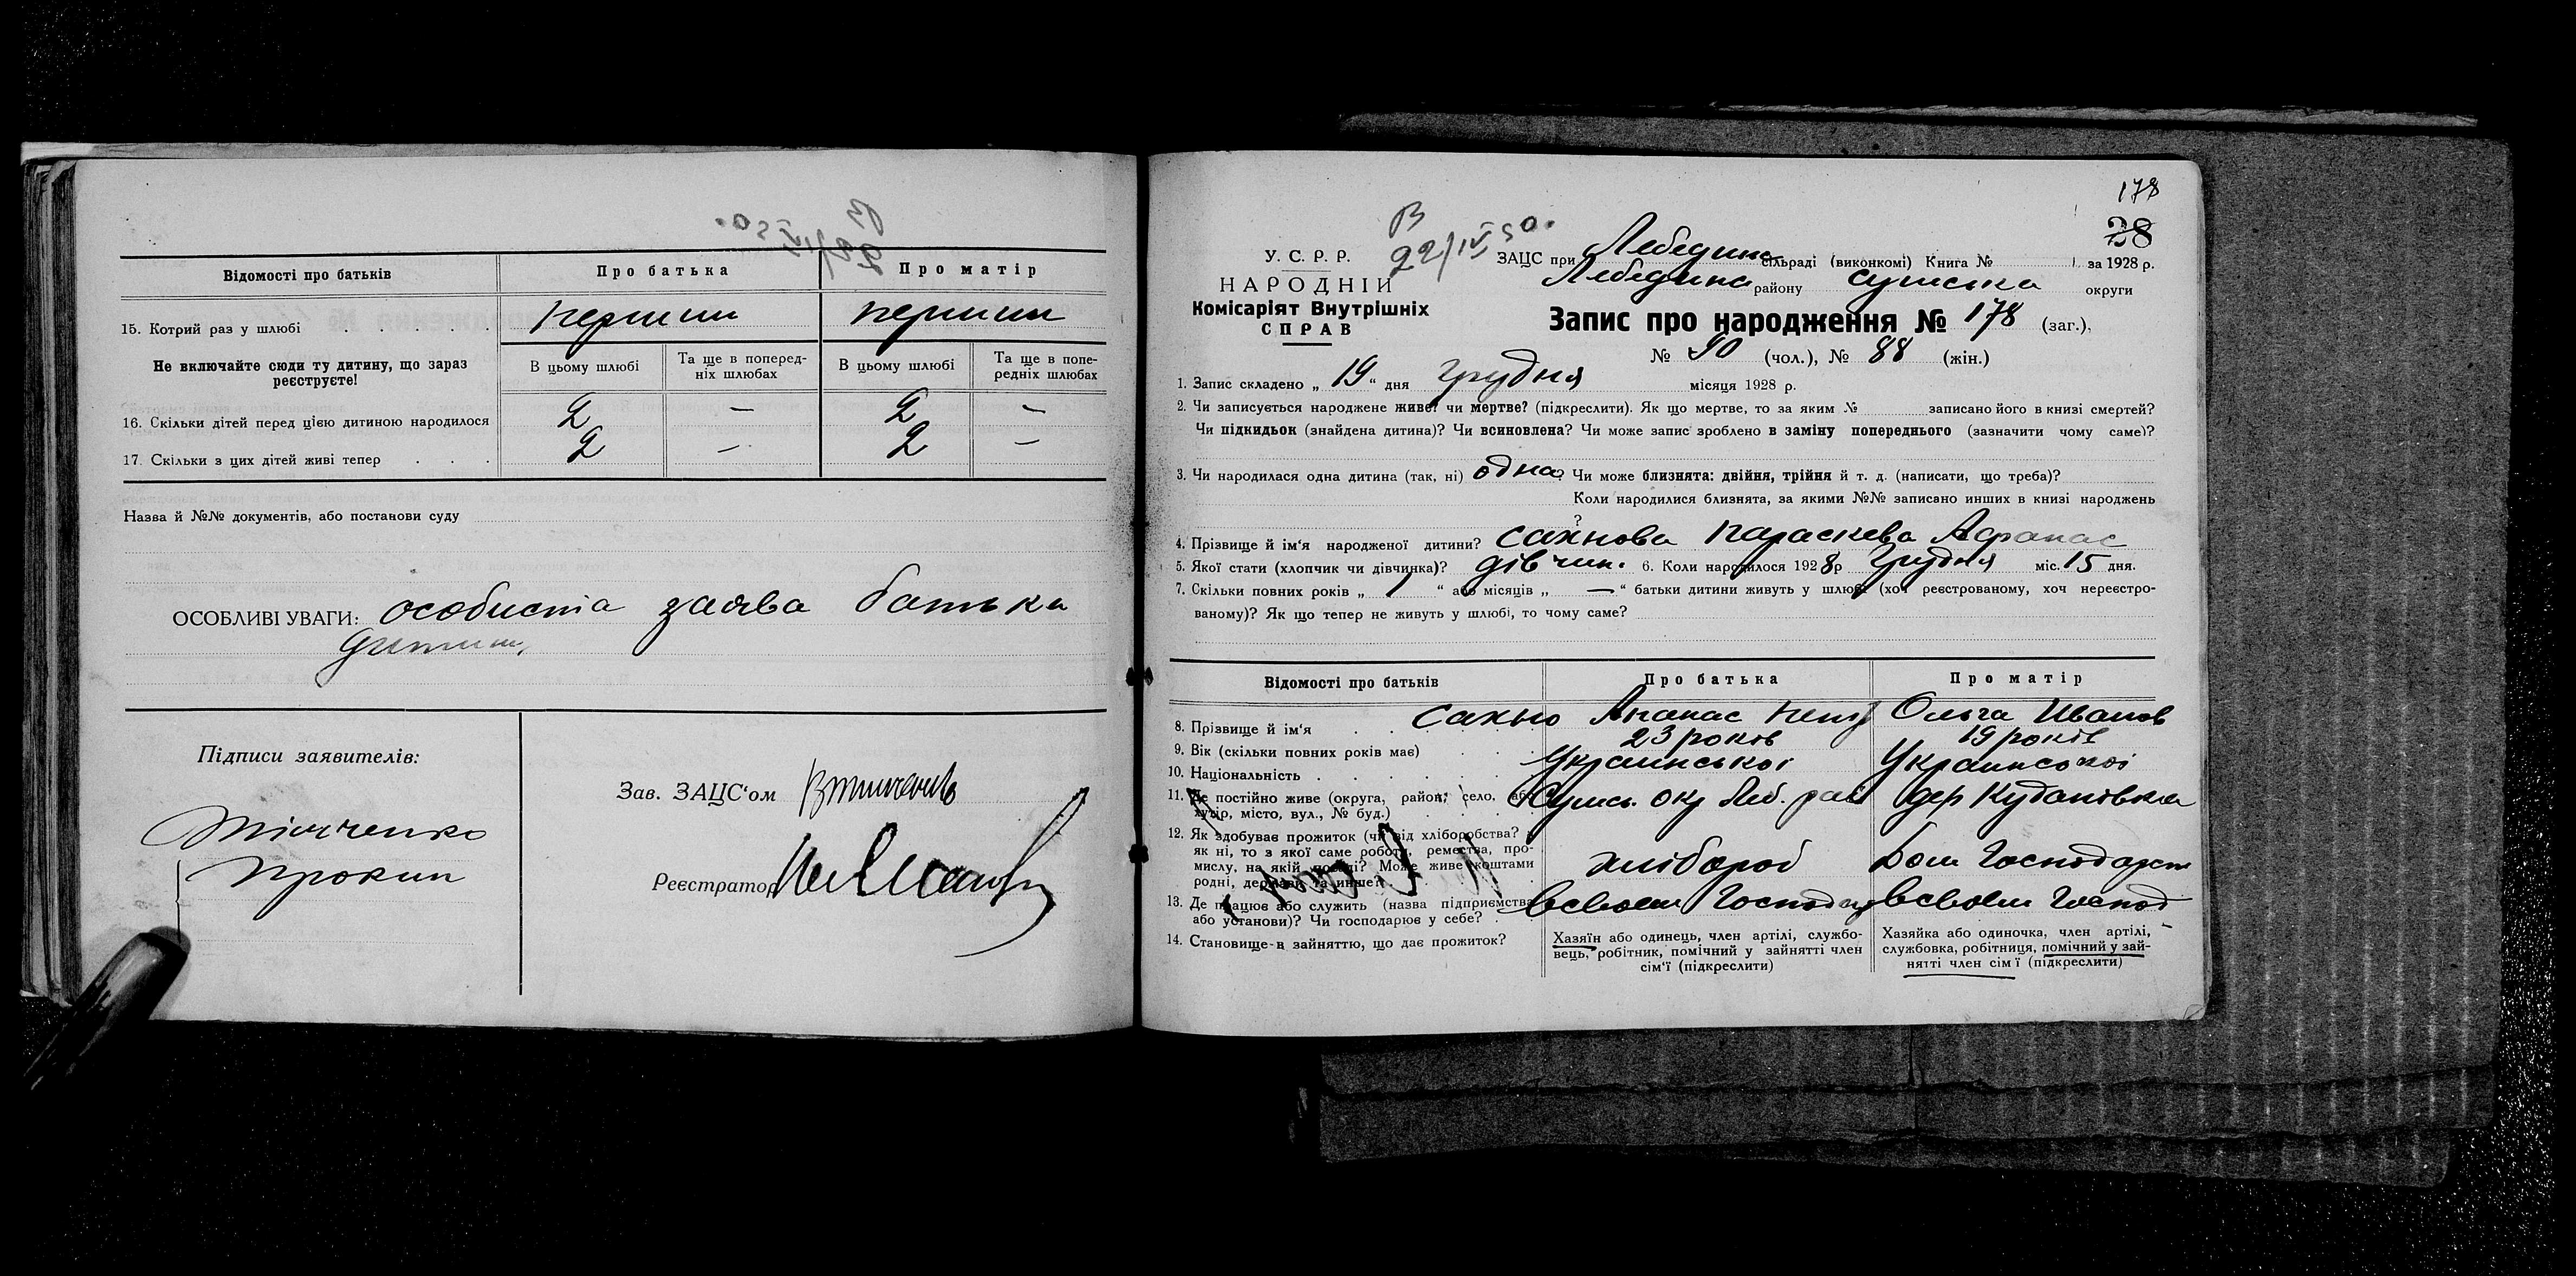 Відомості про батьків
Про батька
Про матір
15. Котрий раз у шлюбі
перший
перший
Не включайте сюди ту дитину, що зараз реєструєте!
В цьому шлюбі
Та ще в поперед-
ніх шлюбах
В цьому шлюбі
Та ще в попе-
редніх шлюбах
16. Скільки дітей перед цією дитиною народилося
2 — 2 —
17. Скільки з цих дітей живі тепер
2 — 2 —
Назва й №№ документів, або постанови суду
ОСОБЛИВІ УВАГИ: особиста заява батька
дитини,
Підписи заявителів:
Зав. ЗАЦС'ом
Реєстратор
178
28
В
22/IV 50.
У. С. Р. Р.
НАРОДНІЙ
Комісаріят Внутрішніх
СПРАВ
ЗАЦС при Лебедина сільраді (виконкомі) Книга № 1 за 1928 р.
Лебедина району Сумська округи
Запис про народження № 178 (заг.),
№ 90 (чол.), № 88 (жін.)
1. Запис складено „ 19 " дня Грудня місяця 1928 р.
2. Чи записується народжене живе? чи мертве? (підкреслити). Як що мертве, то за яким № записано його в книзі смертей?
Чи підкидьок (знайдена дитина)? Чи всиновлена? Чи може запис зроблено в заміну попереднього (зазначити чому саме)?
3. Чи народилася одна дитина (так, ні) одна? Чи може близнята: двійня, трійня й т. д. (написати, що треба)?
Коли народилися близнята, за якими №№ записано инших в книзі народжень
?
4. Прізвище й ім'я народженої дитини? Сахнова Параскева Афанас
5. Якої стати (хлопчик чи дівчинка)? дівчин. 6. Коли народилося 1928 р Грудня міс. 15 дня.
7. Скільки повних років „ 1 " або місяців „ — " батьки дитини живуть у шлюбі (хоч реєстрованому, хоч нереєстро-
ваному)? Як що тепер не живуть у шлюбі, то чому саме?
Відомості про батьків
Про батька
Про матір
8. Прізвище й ім'я
Сахно Ольга Иванов
9. Вік (скільки повних років має)
23 років
19 років
10. Національність
Украинської
11. Де постійно живе (округа, район, село, або
хутір, місто, вул., № буд.)
Сумсь. окр Леб. рай
12. Як здобуває прожиток (чи від хліборобства?
як ні, то з якої саме роботи, ремества, про-
мислу, на якій посаді? Може живе коштами
родні, держави та инше?)
хлібороб
Дом Господарст
13. Де працює або служить (назва підприємства
або установи)? Чи господарює у себе?
всвоем Господар
всвоем Господ
14. Становище в зайняттю, що дає прожиток?
Хазяїн або одинець, член артілі, службо-
вець, робітник, помічний у зайнятті член
сім'ї (підкреслити)
Хазяйка або одиночка, член артілі,
службовка, робітниця, помічний у зай-
нятті член сім'ї (підкреслити)